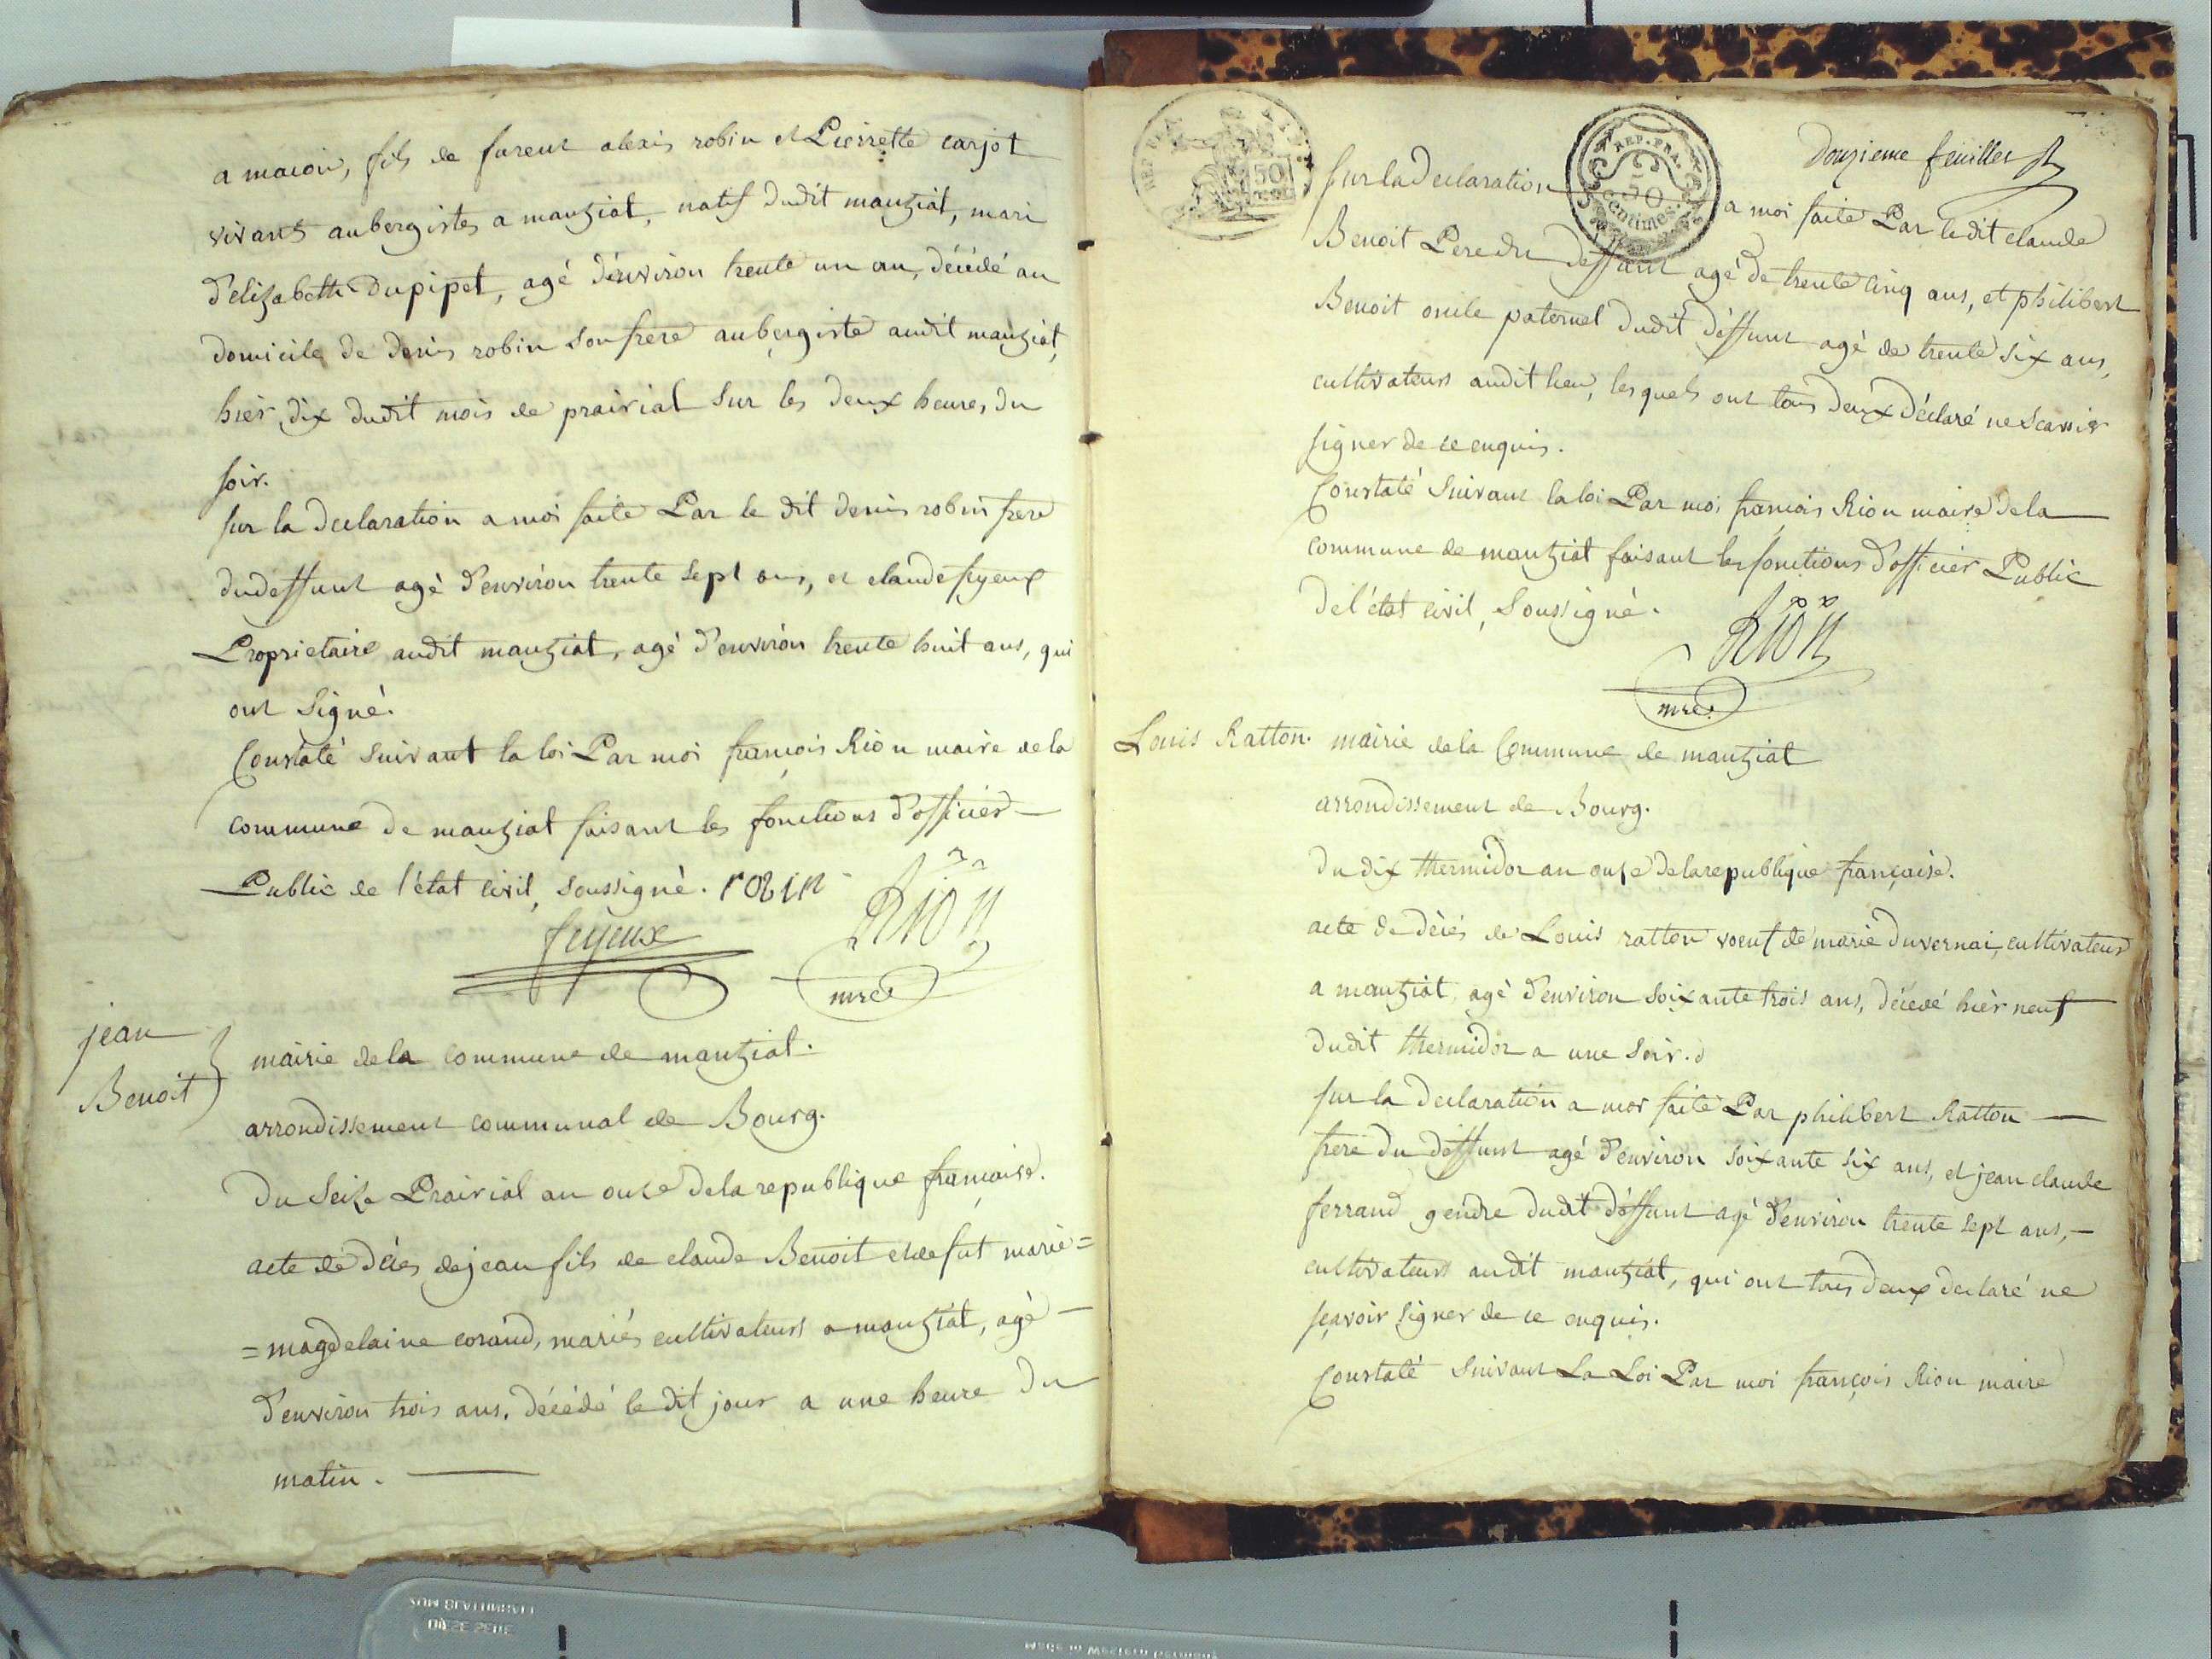 a macon, fils de fureut alexis robin et Pierrette carjot
vivans aubergistes a manziat, natif dudit manziat, mari
d'elizabeth Dupipet, agé d'environ trente un an, décédé au
domicile de denis robin son frere aubergiste audit manziat,
hier dix dudit mois de prairial sur les deux heures du
soir.
sur la declaration a moi faite Par le dit denis robin frere
du deffunt agé d'environ trente sept ans, et claude feyeux
Proprietaire audit manziat, agé d'environ trente huit ans, qui
ont signé.
Constaté suivant la loi Par moi françois Rion maire de la
commune de manziat faisant les fonctions d'officier
Public de l'état civil, soussigné. robin
feyeux
Rion
mre
jean
Benoit
mairie de la commune de manziat.
arrondissement communal de Bourg.
Du Seize Prairial an onze de la republique française.
acte de décès de jean fils de claude Benoit et de fut marie=
=magdelaine corand, mariés cultivateurs a manziat, agé
d'environ trois ans, décédé le dit jour a une heure du
matin.
REP. FRA.
50
REP. FRA.
50
centimes.
Douzieme feuillet
sur la declaration a moi faite Par ledit claude
Benoit Pere du deffunt agé de trente cinq ans, et philibert
Benoit oncle paternel dudit déffunt agé de trente six ans,
cultivateurs audit lieu, lesquels ont tous deux déclaré ne scavoir
signer de ce enquis.
Constaté suivant la loi Par moi françois Rion maire de la
commune de manziat faisant les fonctions d'officier Public
de l'état civil, soussigné.
Rion
mre
Louis Ratton.
mairie de la Commune de manziat
arrondissement de Bourg.
du dix thermidor an onze de la republique française.
acte de décés de Louis ratton voeuf de marie duvernai, cultivateur
a manziat, agé d'environ soixante trois ans, décédé hièr neuf
dudit thermidor a une soir.
sur la declaration a moi faite Par philibert Ratton
frere du déffunt agé d'environ soixante six ans, et jean claude
ferrand gendre dudit déffunt agé d'environ trente sept ans,
cultivateurs audit manziat, qui ont tous deux declaré ne
sçavoir signer de ce enquis.
Constaté suivant La Loi Par moi françois Rion maire
DIESE SEITE
Made in Western Germany